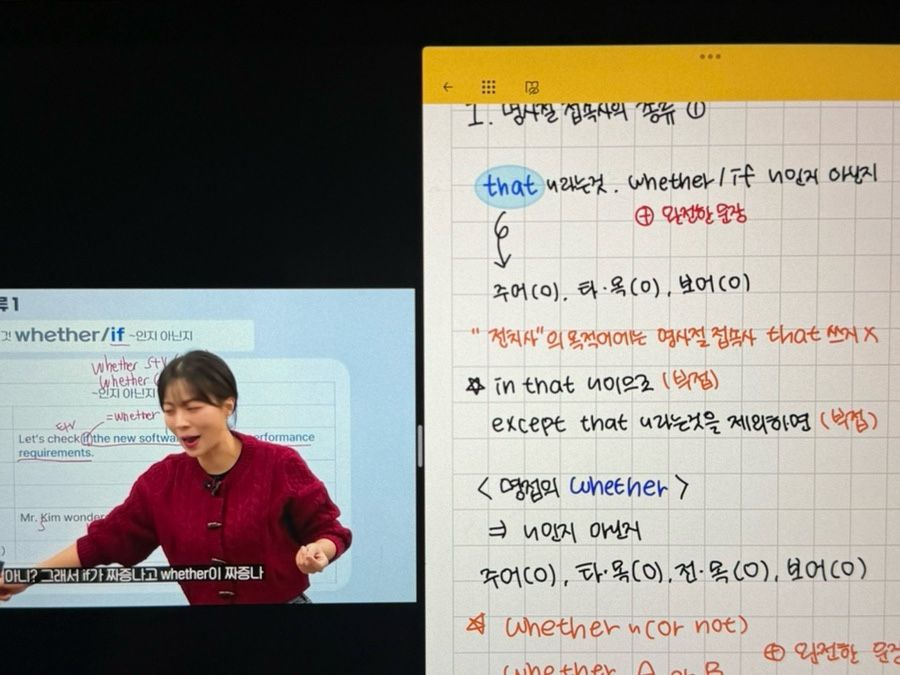 류 1
것 whether/if ~인지 아닌지
whether S+V
whether
~인지 아닌지
=whether
Let's check if the new softwa erformance
requirements.
Mr. Kim wonder
아니? 그래서 if가 짜증나고 whether이 짜증나
1. 명사절 접속사의 종류 ①
that ~라는것. whether/if ~인지 아닌지
⊕ 완전한 문장
주어(O). 타·목(O), 보어(O)
"전치사"의 목적어에는 명사절 접속사 that 쓰지 X
☆ in that ~이므로 (부접)
except that ~라는것을 제외하면 (부접)
< 명접의 whether >
⇒ ~인지 아닌지
주어(O), 타·목(O), 전·목(O), 보어(O)
☆ whether ~(or not)
⊕ 완전한 문장
whether A or B